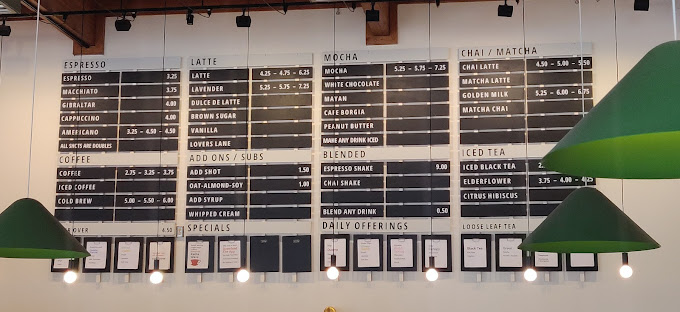 ESPRESSO
ESPRESSO 3.25
MACCHIATO 3.75
GIBRALTAR 4.00
CAPPUCCINO 4.00
AMERICANO 3.25 - 4.50 - 4.50
ALL SHOTS ARE DOUBLES
COFFEE
COFFEE 2.75 - 3.25 - 3.75
ICED COFFEE
COLD BREW 5.00 - 5.50 - 6.00
OVER 4.50
LATTE
LATTE 4.25 - 4.75 - 6.25
LAVENDER 5.25 - 5.75 - 7.25
DULCE DE LATTE
BROWN SUGAR
VANILLA
LOVERS LANE
ADD ONS / SUBS
ADD SHOT 1.50
OAT-ALMOND-SOY 1.00
ADD SYRUP
WHIPPED CREAM
SPECIALS
MOCHA
MOCHA 5.25 - 5.75 - 7.25
WHITE CHOCOLATE
MAYAN
CAFE BORGIA
PEANUT BUTTER
MAKE ANY DRINK ICED
BLENDED
ESPRESSO SHAKE 9.00
CHAI SHAKE
BLEND ANY DRINK 0.50
DAILY OFFERINGS
CHAI / MATCHA
CHAI LATTE 4.50 - 5.00 - 5.50
MATCHA LATTE
GOLDEN MILK 5.25 - 6.00 - 6.75
MATCHA CHAI
ICED TEA
ICED BLACK TEA
ELDERFLOWER 3.75 - 4.00 - 4.25
CITRUS HIBISCUS
LOOSE LEAF TEA
Black Tea